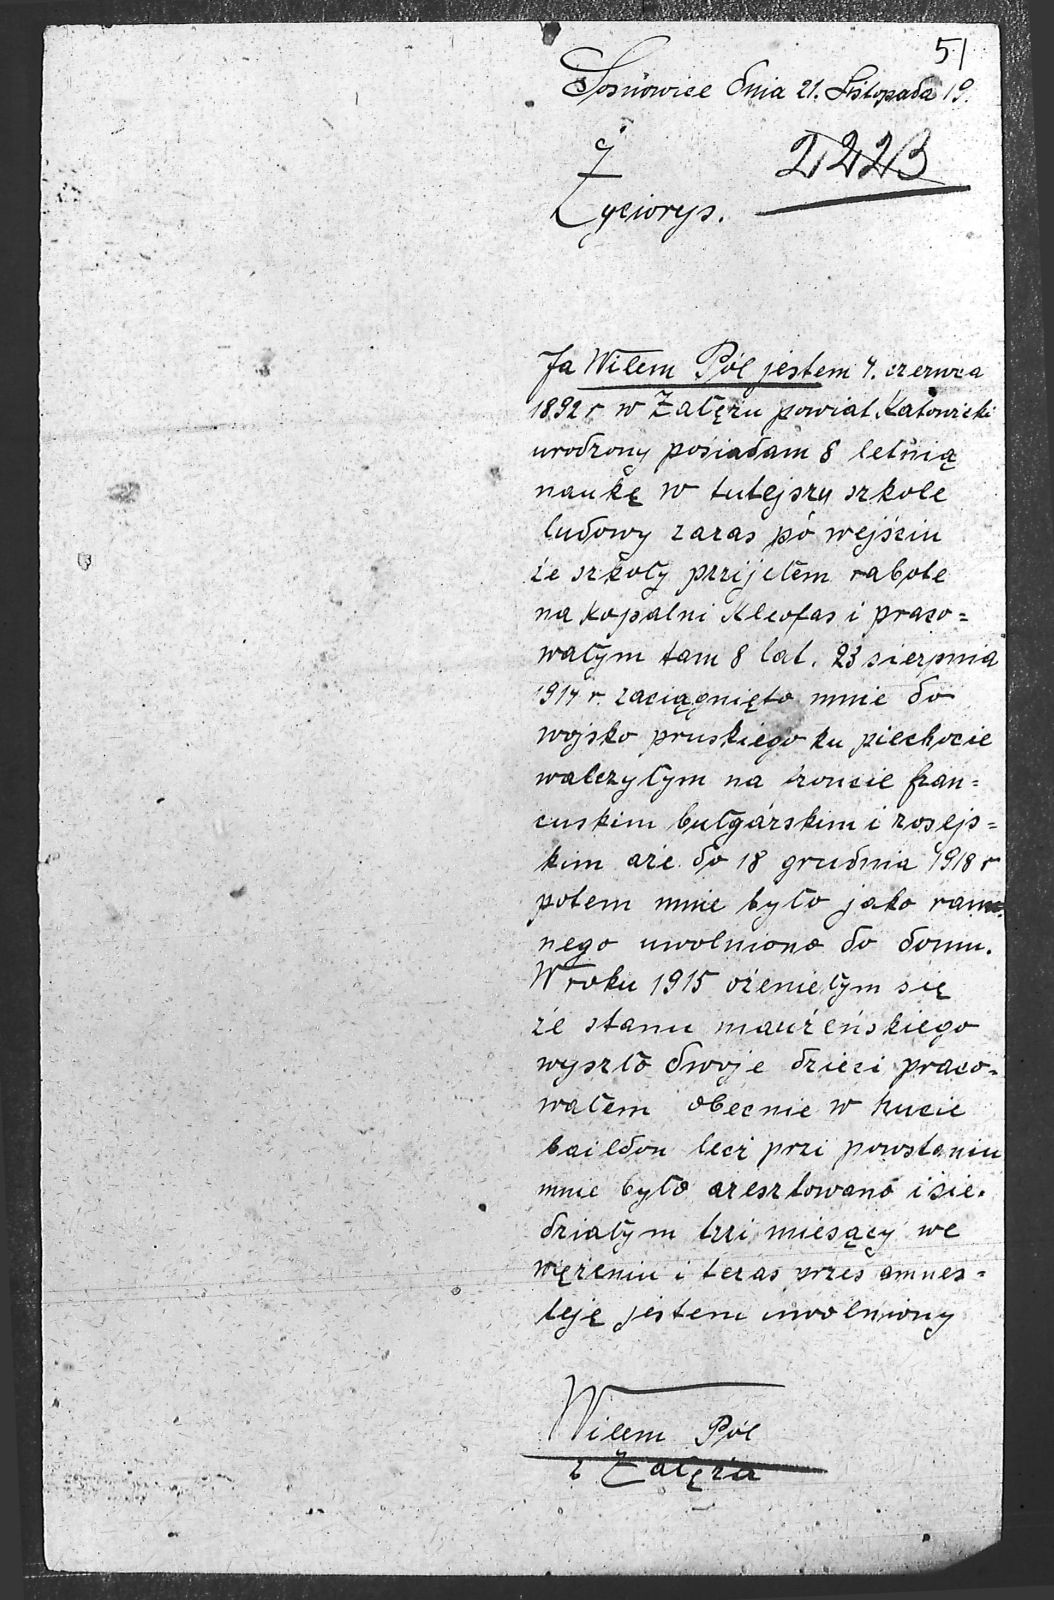 51
Sosnowice dnia 21. Listopada 19.
2223
Życiorys.
Ja Wilem Pól jestem 4. czerwca
1892 r w Załężu powiat Katowicki
urodzony posiadam 8 letnią
naukę w tutejszy szkole
ludowy zaras po wejściu
że szkoły przijełem rabote
na kopalni Kleofas i praco=
wałym tam 8 lat. 23 sierpnia
1914 r. zaciągnięto mnie do
wojsko pruskiego ku piechocie
walczyłym na froncie fran=
cuskim bułgarskim i rosejs=
kim aże do 18 grudnia 1918 r
potem mnie było jako ran
nego uwolniono do domu.
W roku 1915 ożeniełym się
że stanu maużeńskiego
wyszło dwoje dzieci praco=
wałem obecnie w hucie
baildon lecz przi powstaniu
mnie było aresztowano i sie.
działym trzi miesący we
więzeniu i teras przes amnes=
teję jestem uwolniony
Wilem Pól
z Załęża